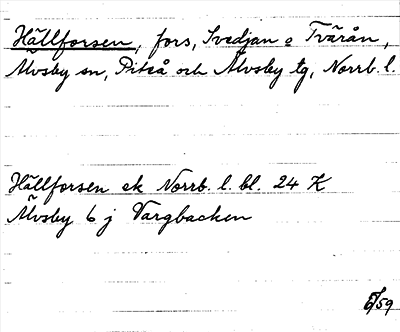 Hällforsen, fors, Svedjan o Tvärån,
Älvsby sn, Piteå och Älvsby tg, Norrb. l.
Hällforsen ek Norrb. l. bl. 24 K
Älvsby 6 j Vargbacken
59